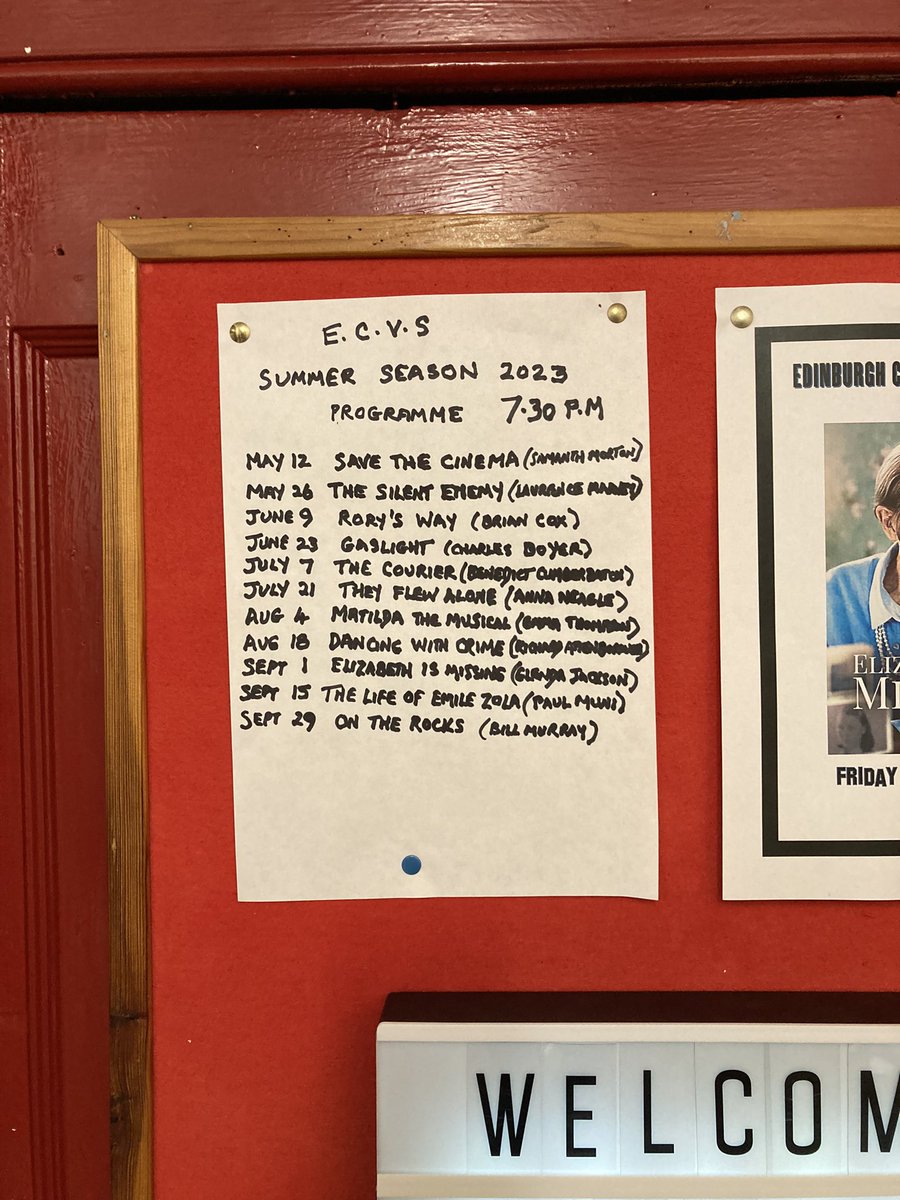 E.C.V.S
SUMMER SEASON 2023
PROGRAMME 7.30 P.M
MAY 12 SAVE THE CINEMA (SAMANTH MORTON)
MAY 26 THE SILENT ENEMY (LAURENCE HARVEY)
JUNE 9 RORY'S WAY (BRIAN COX)
JUNE 23 GASLIGHT (CHARLES BOYER)
JULY 7 THE COURIER (BENEDICT CUMBERBATCH)
JULY 21 THEY FLEW ALONE (ANNA NEAGLE)
AUG 4 MATILDA THE MUSICAL (EMMA THOMPSON)
AUG 18 DANCING WITH CRIME (RICHARD ATTENBOROUGH)
SEPT 1 ELIZABETH IS MISSING (GLENDA JACKSON)
SEPT 15 THE LIFE OF EMILE ZOLA (PAUL MUNI)
SEPT 29 ON THE ROCKS (BILL MURRAY)
EDINBURGH C
ELIZ
MI
FRIDAY
WELCOM